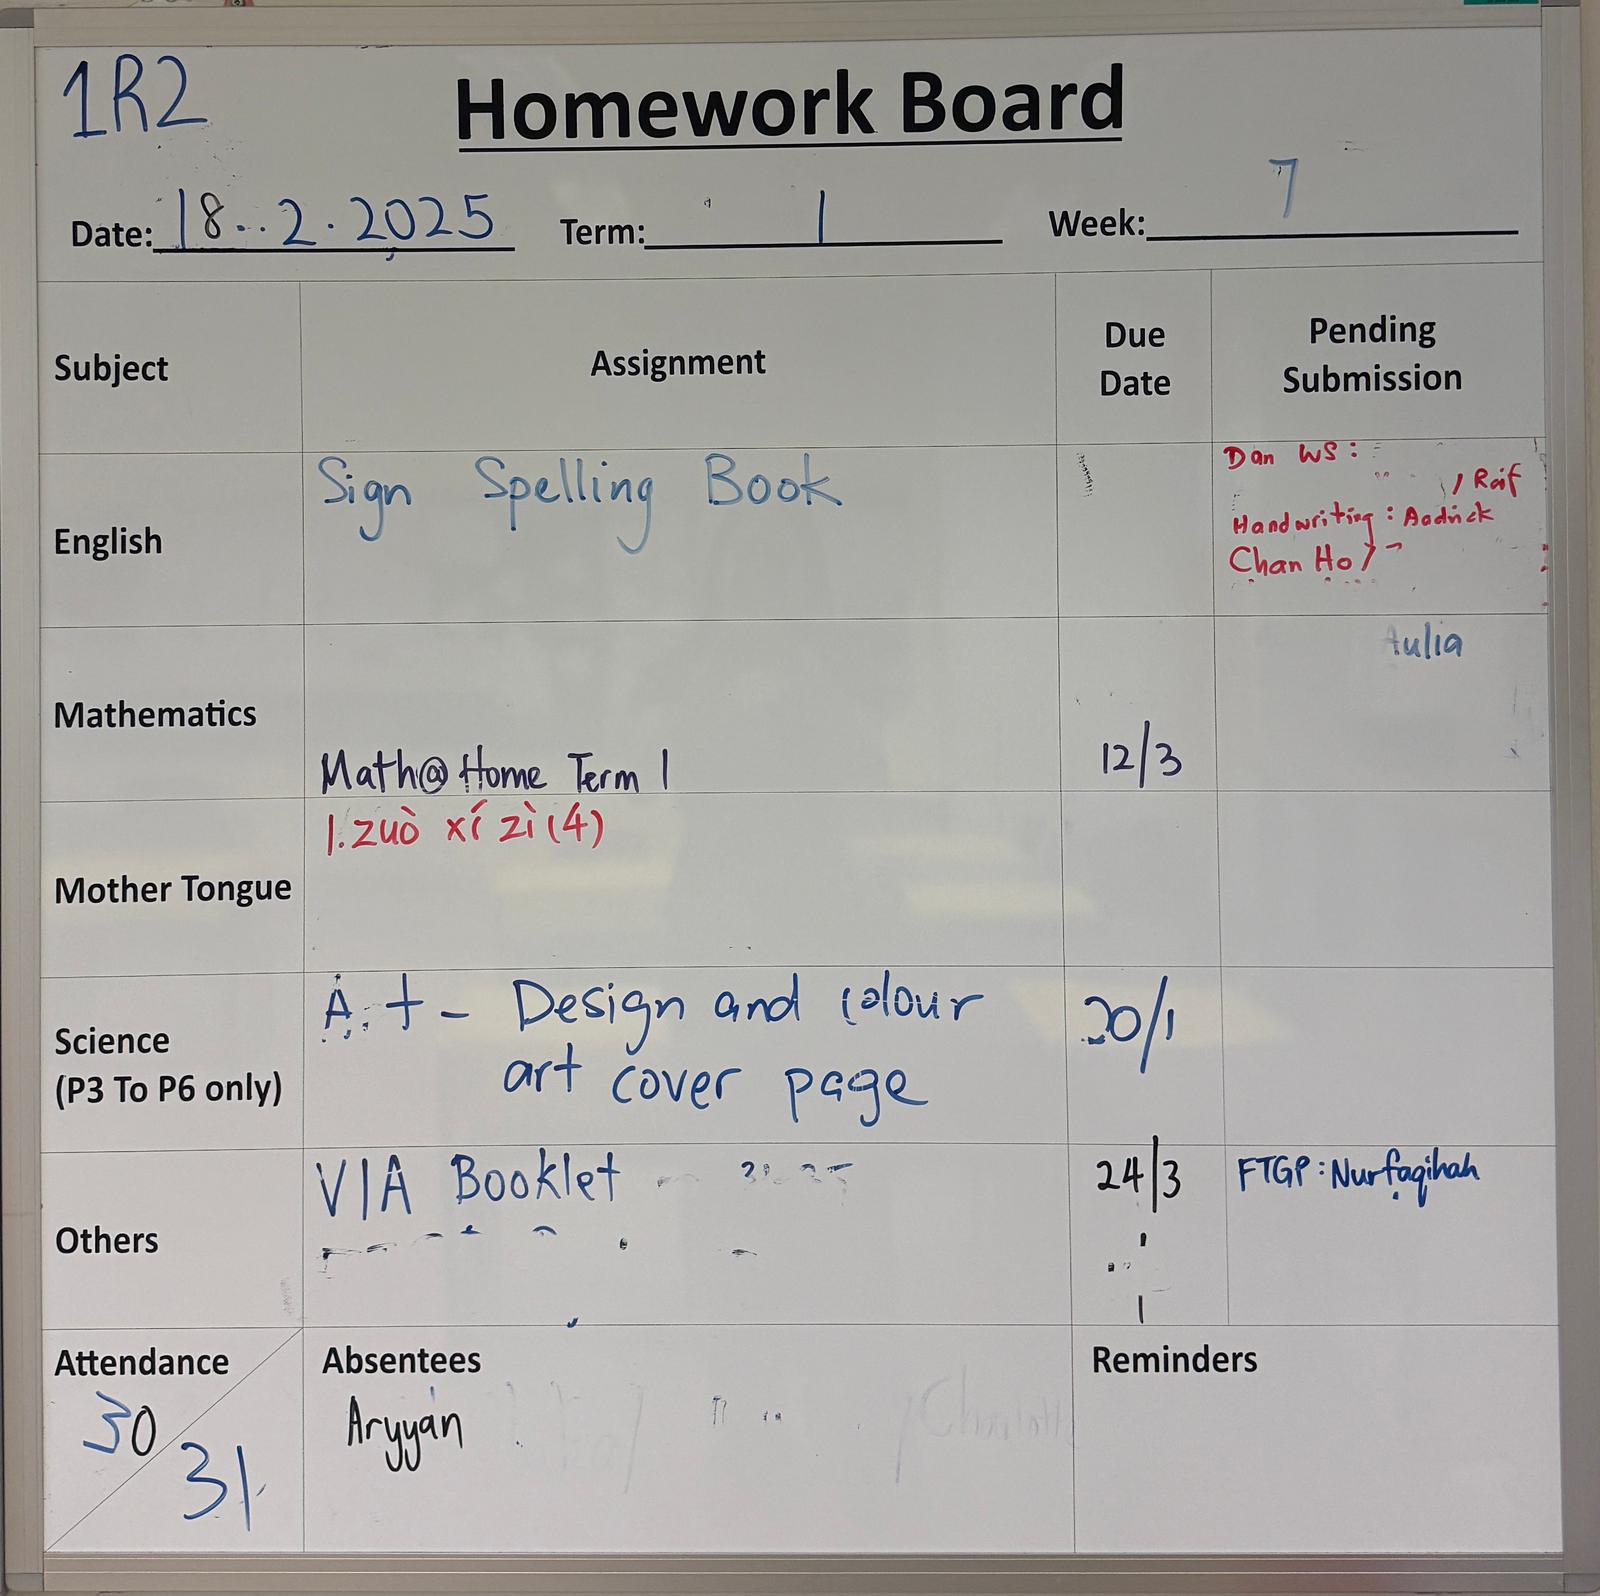 1R2
Homework Board
Date: 18..2.2025 Term: 1 Week: 7
Subject
Assignment
Due
Date
Pending
Submission
English
Sign Spelling Book
Dan WS:
, Raif
Handwriting: Aadrick
Chan Ho,
Mathematics
Math@Home Term 1
12/3
Aulia
Mother Tongue
1. zuò xí zì (4)
Science
(P3 To P6 only)
Art - Design and colour
art cover page
20/1
Others
VIA Booklet
24/3
FTGP: Nurfaqihah
Attendance
30
31
Absentees
Aryyan
Reminders